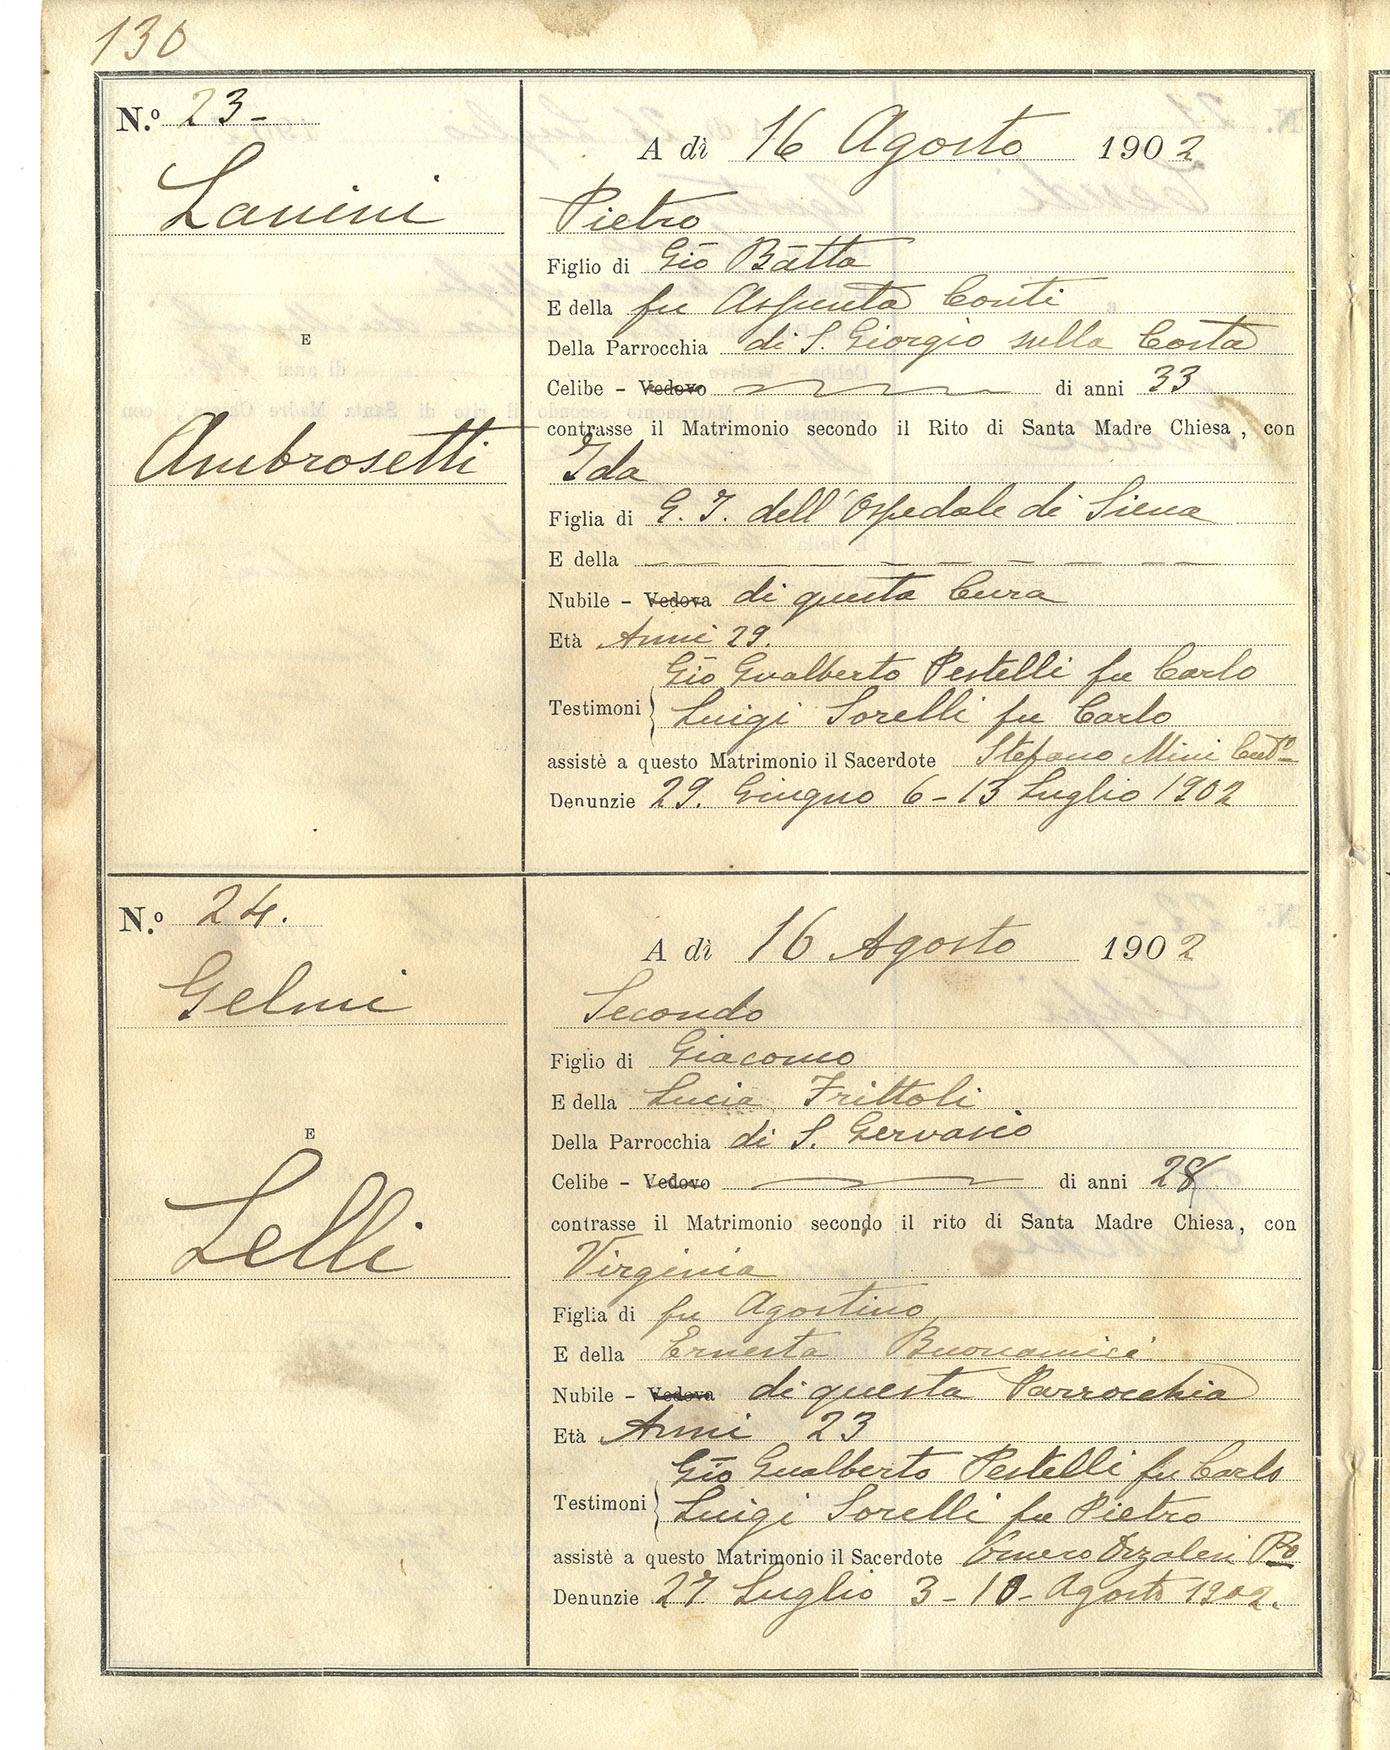 130
N.º 23-
Lanini
E
Ambrosetti
A dì 16 Agosto 1902
Pietro
Figlio di Gio Batta
E della fu Assunta Conti
Della Parrocchia di S. Giorgio sulla Costa
Celibe - Vedovo di anni 33
contrasse il Matrimonio secondo il Rito di Santa Madre Chiesa, con
Ida
Figlia di G. I. dell'Ospedale di Siena
E della — — — — — — — —
Nubile - Vedova di questa Cura
Età Anni 29.
Gio Gualberto Pestelli fu Carlo
Testimoni Luigi Sorelli fu Carlo
assistè a questo Matrimonio il Sacerdote Stefano Mini
Denunzie 29. Giugno 6-13 Luglio 1902
N.º 24.
Gelmi
E
Lelli
A dì 16 Agosto 1902
Secondo
Figlio di Giacomo
E della Lucia Frittoli
Della Parrocchia di S. Gervasio
Celibe - Vedovo di anni 28
contrasse il Matrimonio secondo il rito di Santa Madre Chiesa, con
Virginia
Figlia di fu Agostino
E della Ernesta Buonamici
Nubile - Vedova di questa Parrocchia
Età Anni 23
Gio Gualberto Pestelli fu Carlo
Testimoni Luigi Sorelli fu Pietro
assistè a questo Matrimonio il Sacerdote
Denunzie 27 Luglio 3-10- Agosto 1902.